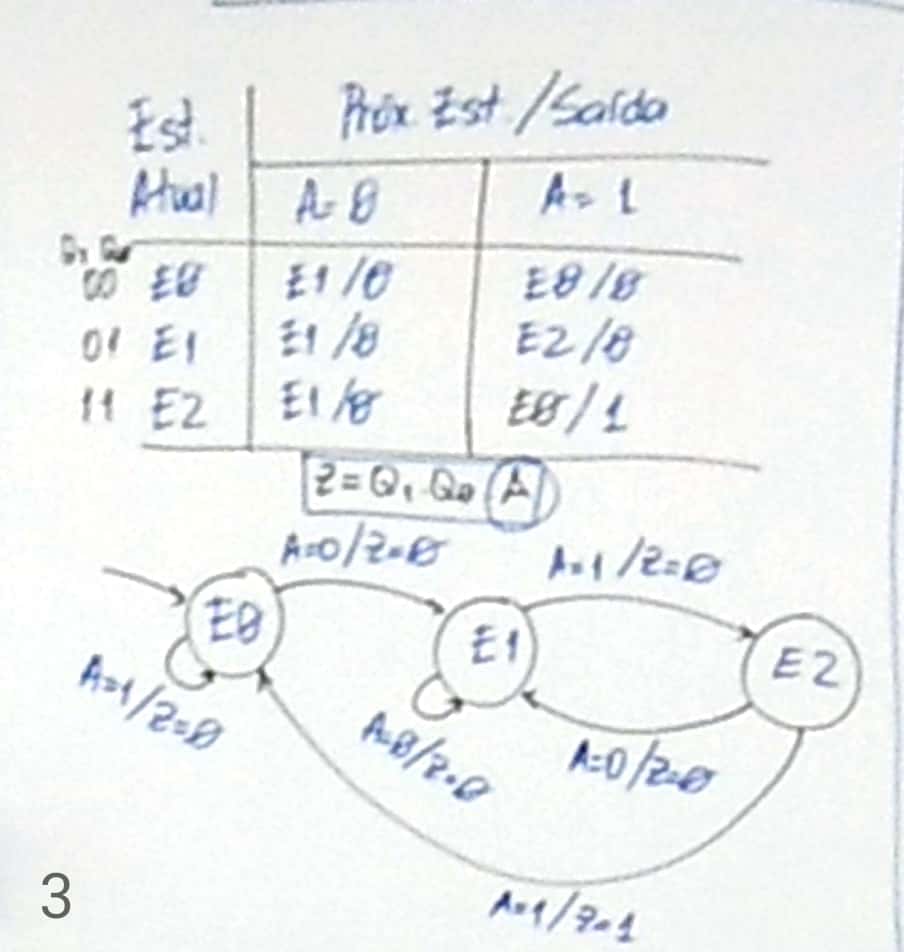 Est. Próx. Est. / Saída
Atual A=0 A=1
Q1 Q0
00 E0 E1/0 E0/0
01 E1 E1/0 E2/0
11 E2 E1/0 E0/1
Z=Q1.Q0 A
A=0/Z=0 A=1/Z=0
E0 E1 E2
A=1/Z=0 A=0/Z=0 A=0/Z=0
A=1/Z=1
3